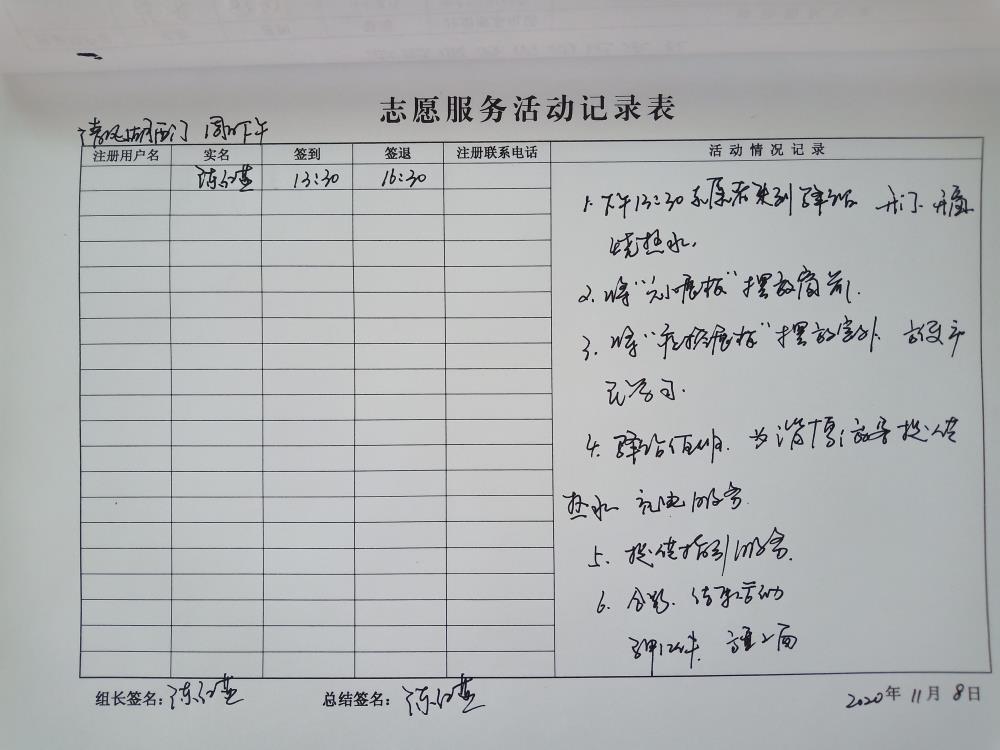 志愿服务活动记录表
清风湖西门 周日下午
注册用户名 实名 签到 签退 注册联系电话 活动情况记录
陈红燕 13:30 16:30
1. 下午13:30志愿者来到驿站 开门 开窗
烧热水.
2. 将“展板”摆放窗前.
3. 将“疫控展板”摆放室外 方便市
民学习.
4. 驿站值班. 为 提供
热水 充电服务
5. 提供指引服务.
6. 合影. 结束活动
组长签名:陈红燕 总结签名:陈红燕
2020年11月8日